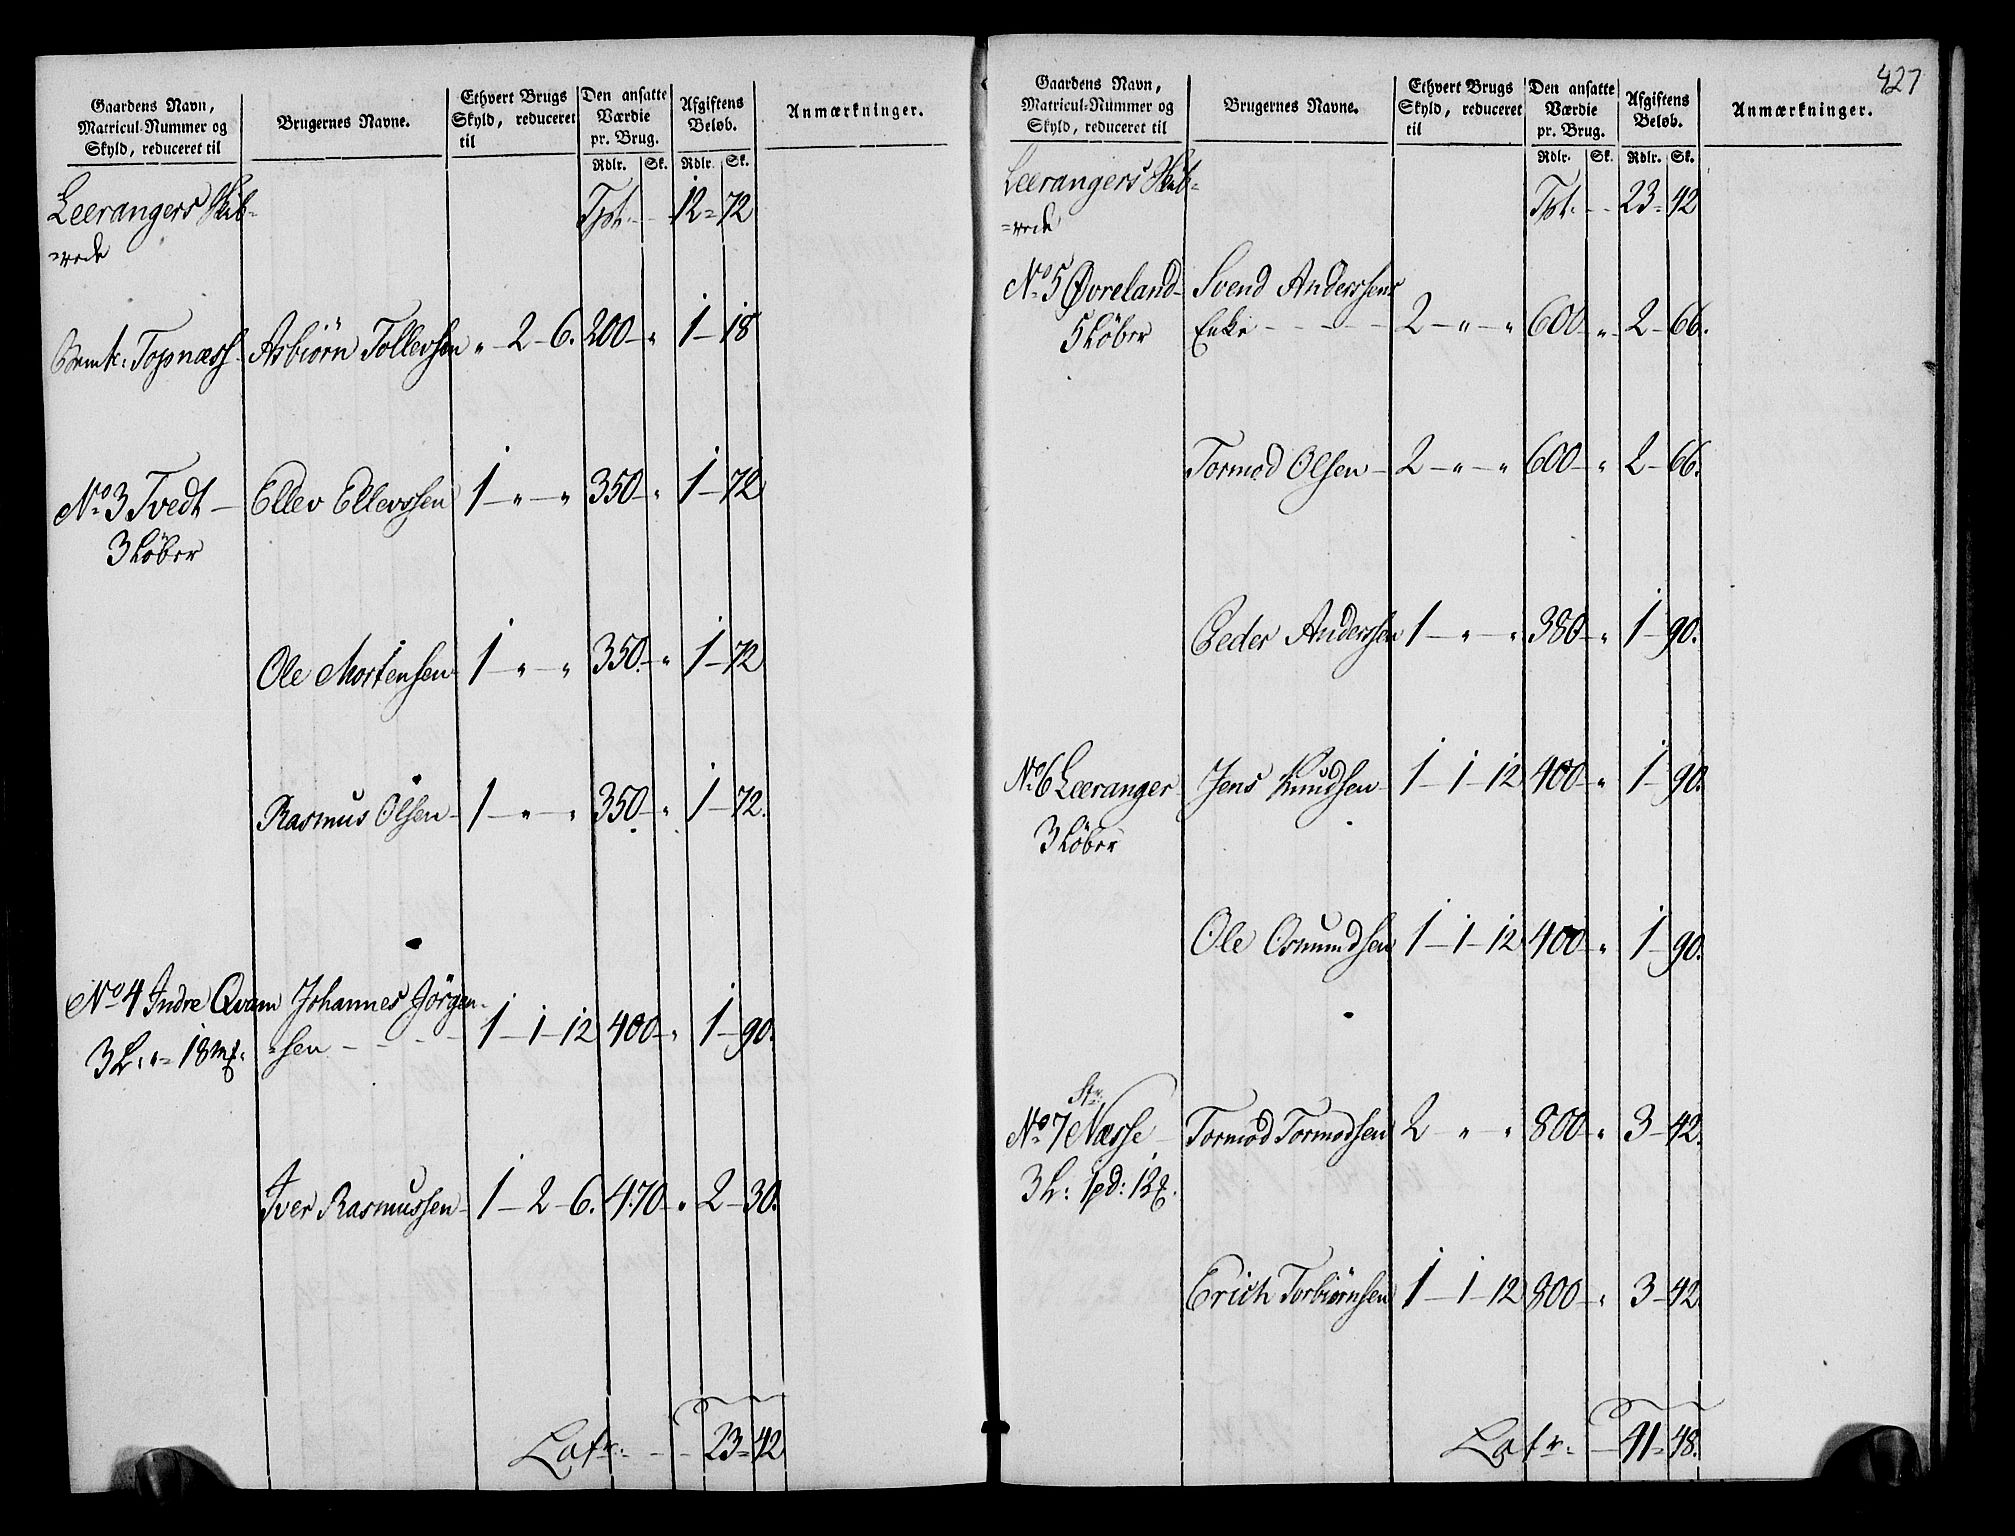 Gaardens Navn, Matricul-Nummer og Skyld, reduceret til
Brugernes Navne.
Ethvert Brugs Skyld, reduceret til
Den ansatte Værdie pr. Brug.
Afgiftens Beløb.
Anmærkninger.
Rdlr. Sk. Rdlr. Sk.
Leerangers Skib= Tpt. - - 12 = 72
=rede
Topnæss Asbiörn Tollevsen " - 2 - 6. 200 - " 1 - 18
No 3 Tvedt - Ellev Ellevssen 1 - " - " 350 - " 1 - 72
3 Löber
Ole Mortensen 1 - " - " 350. - " 1 - 72
Rasmus Olsen - 1 - " - " 350 - " 1 - 72.
No 4 Indre Qvam Johannes Jörgen-
3 L: " = 18 mk. =sen - - - - 1 - 1 - 12 400 - " 1 - 90.
Iver Rasmussen - 1 - 2 - 6. 470 - " 2 - 30.
Latr: - - 23 = 42
427
Gaardens Navn, Matricul-Nummer og Skyld, reduceret til
Brugernes Navne.
Ethvert Brugs Skyld, reduceret til
Den ansatte Værdie pr. Brug.
Afgiftens Beløb.
Anmærkninger.
Rdlr. Sk. Rdlr. Sk.
Leerangers Skib= Tpt. - - 23 = 42
=rede
No 5 Øvreland - Svend Anderssens
5 Löber Enke - - - - 2 - " - " 600 - " 2 - 66.
Tormod Olsen - 2 - " - " 600 - " 2 - 66.
Peder Anderssen 1 - " - " 380 - " 1 - 90.
No 6 Leeranger Jens Knudsen - 1 - 1 - 12 400 - " 1 - 90.
3 Löber
Ole Osmundsen 1 - 1 - 12 400 - " 1 - 90.
Str.
No 7 Næsse - Tormod Tormodsen 2 - " - " 800 - " 3 - 42.
3 L: 1 pd: 12
Erich Torbiörnsen 1 - 1 - 12 800 - " 3 - 42.
Latr. - 41 = 48.